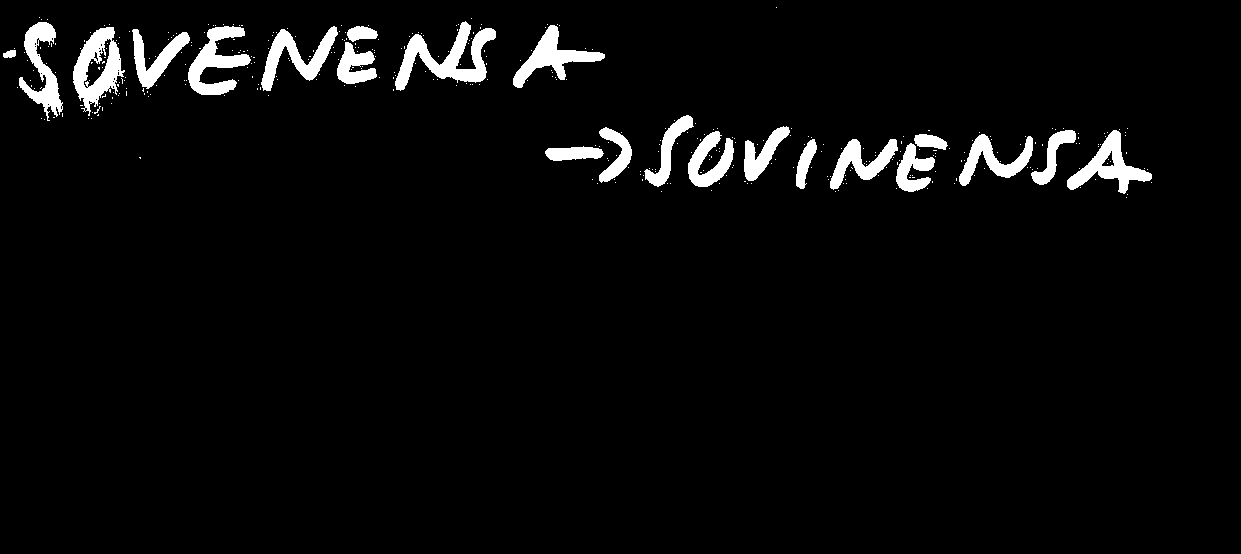 -SOVENENSA
→SOVINENSA